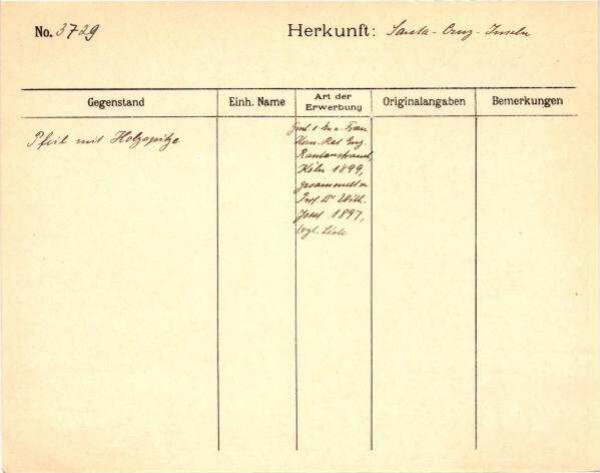 No. 3729
Herkunft: Santa-Cruz-Inseln
Gegenstand
Einh. Name
Art der
Erwerbung
Originalangaben
Bemerkungen
Pfeil mit Holzspitze
Frau
Eug.
Rautenstrauch,
Köln 1899,
gesammelt v.
Prof. Dr. Wilh.
Joest 1897,
vgl. Liste